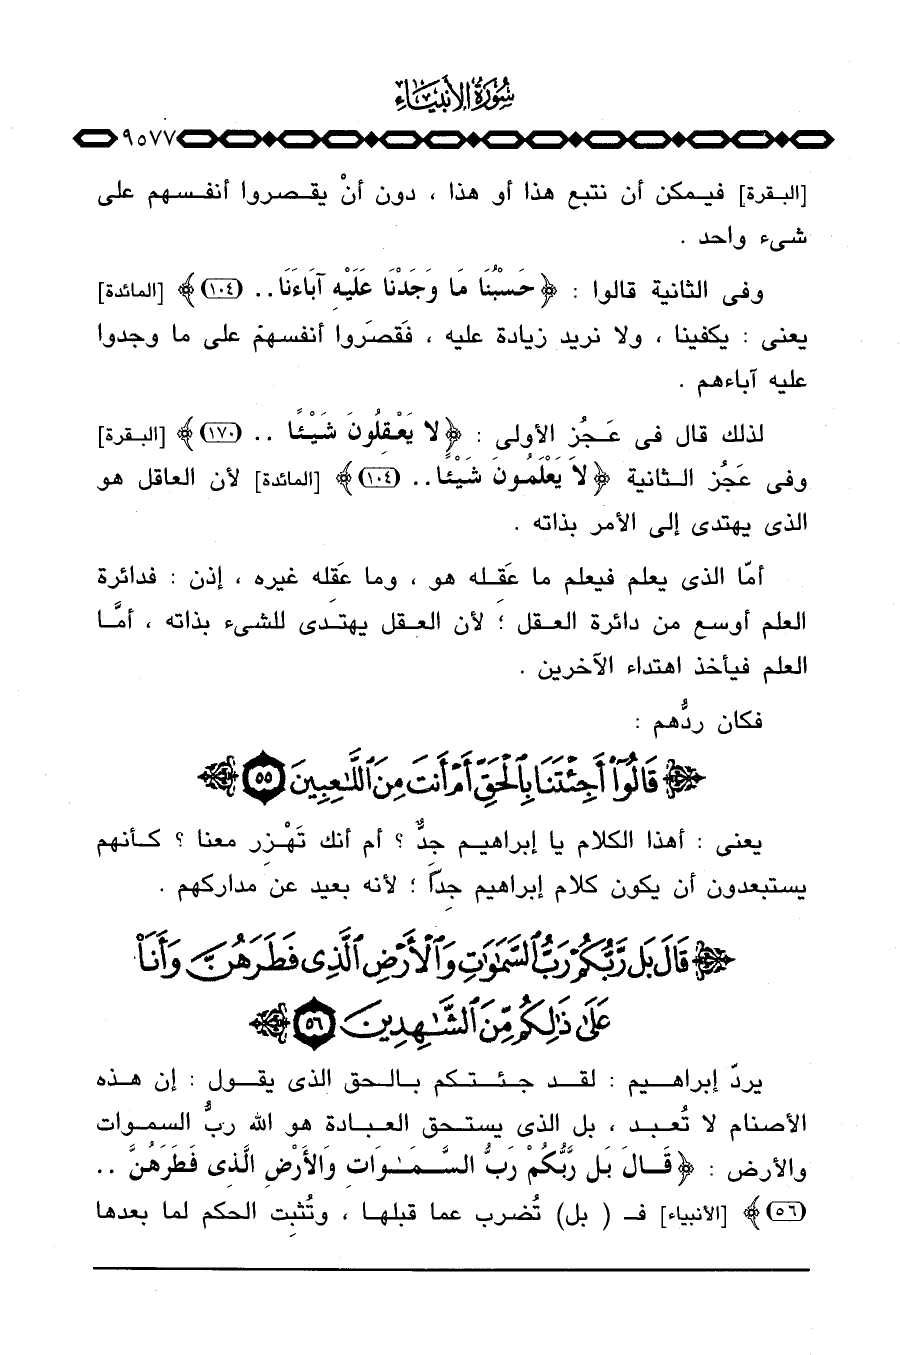 سُورَةُ الأَنبِيَاءِ
٩٥٧٧
[البقرة] فيمكن أن نتبع هذا أو هذا ، دون أنْ يقصروا أنفسهم على
شىء واحد .
وفى الثانية قالوا : ﴿ حَسْبُنَا مَا وَجَدْنَا عَلَيْهِ آبَاءَنَا.. (١٠٤) ﴾ [المائدة]
يعنى : يكفينا ، ولا نريد زيادة عليه ، فَقصَروا أنفسهم على ما وجدوا
عليه آباءهم .
لذلك قال فى عَجُز الأولى : ﴿ لا يَعْقِلُونَ شَيْئًا .. (١٧٠) ﴾ [البقرة]
وفى عَجُز الثانية ﴿ لا يَعْلَمُونَ شَيْئًا.. (١٠٤) ﴾ [المائدة] لأن العاقل هو
الذى يهتدى إلى الأمر بذاته .
أمّا الذى يعلم فيعلم ما عَقَله هو ، وما عَقَله غيره ، إذن : فدائرة
العلم أوسع من دائرة العقل ؛ لأن العقل يهتدى للشىء بذاته ، أمَّا
العلم فيأخذ اهتداء الآخرين .
فكان ردُّهم :
﴿ قَالُوٓا۟ أَجِئْتَنَا بِٱلْحَقِّ أَمْ أَنتَ مِنَ ٱللَّـٰعِبِينَ ٥٥ ﴾
يعنى : أهذا الكلام يا إبراهيم جدٌّ ؟ أم أنك تَهْزِر معنا ؟ كأنهم
يستبعدون أن يكون كلام إبراهيم جِدَّاً ؛ لأنه بعيد عن مداركهم .
﴿ قَالَ بَل رَّبُّكُمْ رَبُّ ٱلسَّمَـٰوَٰتِ وَٱلْأَرْضِ ٱلَّذِى فَطَرَهُنَّ وَأَنَا۠
عَلَىٰ ذَٰلِكُم مِّنَ ٱلشَّـٰهِدِينَ ٥٦ ﴾
يردّ إبراهيم : لقد جئتكم بالحق الذى يقول : إن هذه
الأصنام لا تُعبد ، بل الذى يستحق العبادة هو الله ربُّ السموات
والأرض : ﴿ قَالَ بَل رَّبُّكُمْ رَبُّ السَّمَـٰوَاتِ وَالأَرْضِ الَّذِى فَطَرَهُنَّ ..
(٥٦) ﴾ [الأنبياء] فـ ( بل) تُضرِب عما قبلها ، وتُثبت الحكم لما بعدها